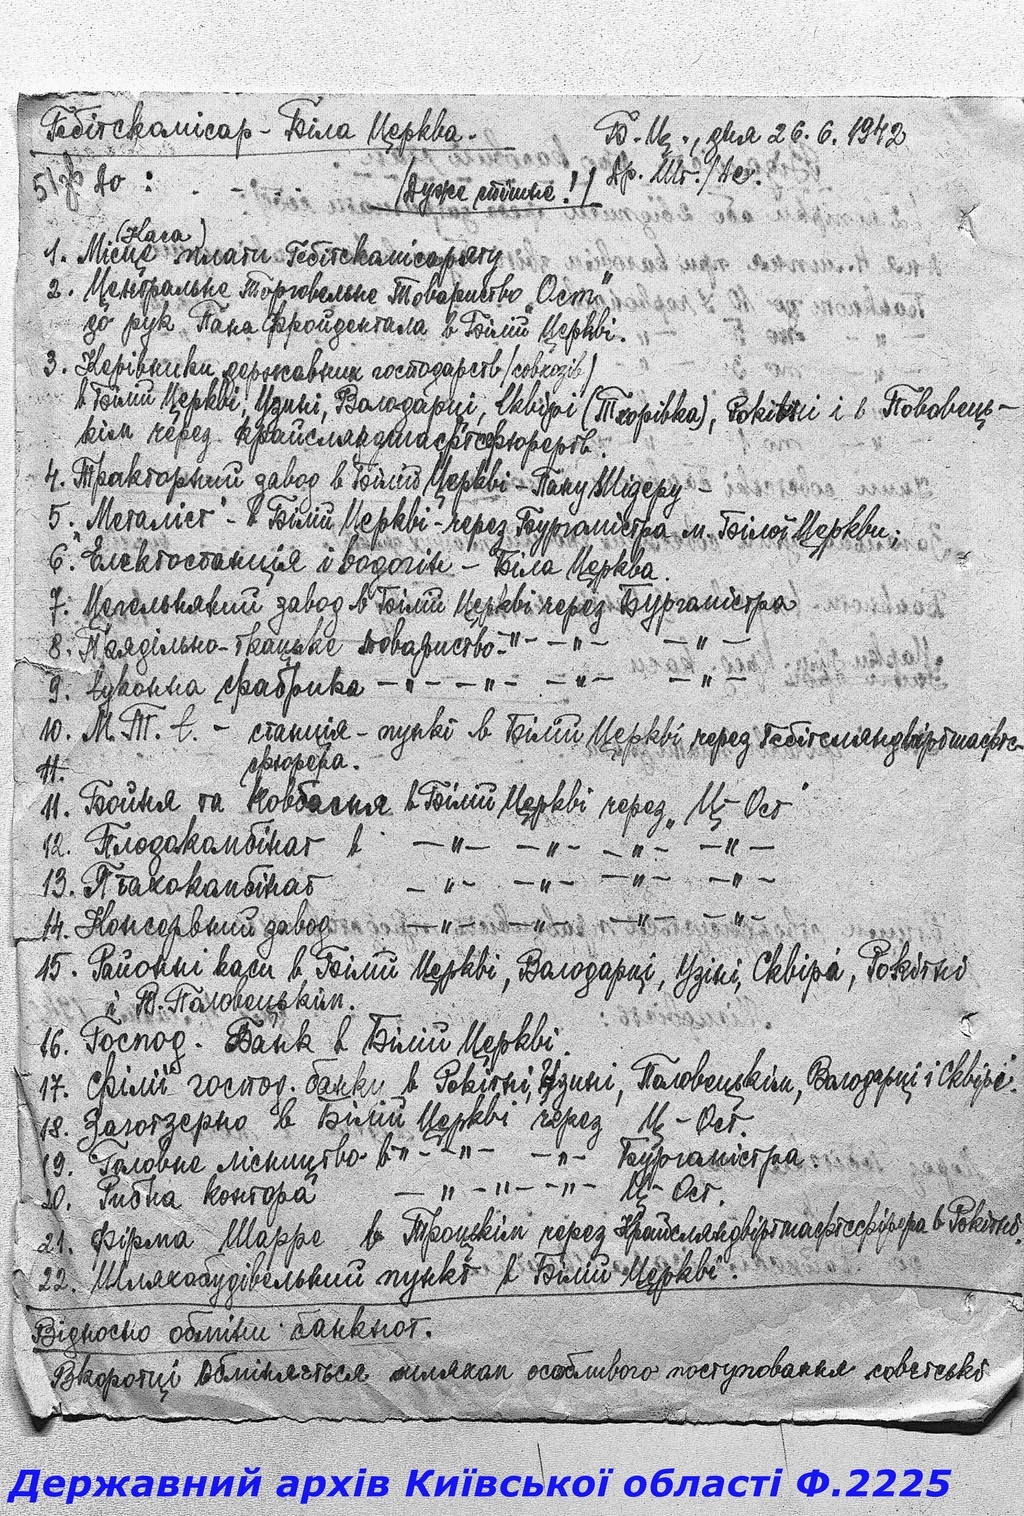 Гебітскомісар - Біла Церква. Б.-Ц., дня 26.6.1942
До : /Дуже спішне!/ Др. Шт./Ле.
(Каса)
1. Місце плати Гебітскомісаряту
2. Центральне Торговельне Товариство „Ост"
до рук Пана Фройдентала в Білій Церкві.
3. Керівники державних господарств /совхозів/
в Білій Церкві, Узині, Володарці, Сквирі (Тхорівка), Рокітні і в Половець-
кім через крайсляндшафтсфюрерств.
4. Тракторний завод в Білій Церкві - Пану Шідеру -
5. „Металіст" - в Білій Церкві - через Бургамістра м. Білої Церкви;
6. Електостанція і водогін - Біла Церква.
7. Цегельняний завод в Білій Церкві через Бургамістра
8. Прядільно-ткацьке товариство -"- -"- -"-
9. Суконна фабрика -"- -"- -"- -"-
10. М.Т.С. - станція - пункт в Білій Церкві через Гебітсляндвіртшафтс-
11. фюрера.
11. Бойня та ковбасня в Білій Церкві через „Ц-Ост"
12. Плодокомбінат в -"- -"- -"- -"-
13. Птахокомбінат -"- -"- -"- -"-
14. Консервний завод -"- -"- -"- -"-
15. Районні каси в Білій Церкві, Володарці, Узіні, Сквіра, Рокітні
і В. Половецькім.
16. Господ. Банк в Білій Церкві.
17. Філії господ. банку в Рокітні, Узині, Половецькім, Володарці і Сквірі.
18. Заготзерно в Білій Церкві через Ц-Ост.
19. Головне лісництво в -"- -"- -"- Бургамістра
20. Рибна контора -"- -"- -"- Ц-Ост.
21. Фірма Шарре в Троцькім через Крайсляндвіртшафтсфюрера в Рокітні.
22. Шляхобудівельний пункт в Білій Церкві.
Відносно обміни банкнот.
Вкоротці обміняється шляхап особливого поступовання совєтські
Державний архів Київської області Ф.2225